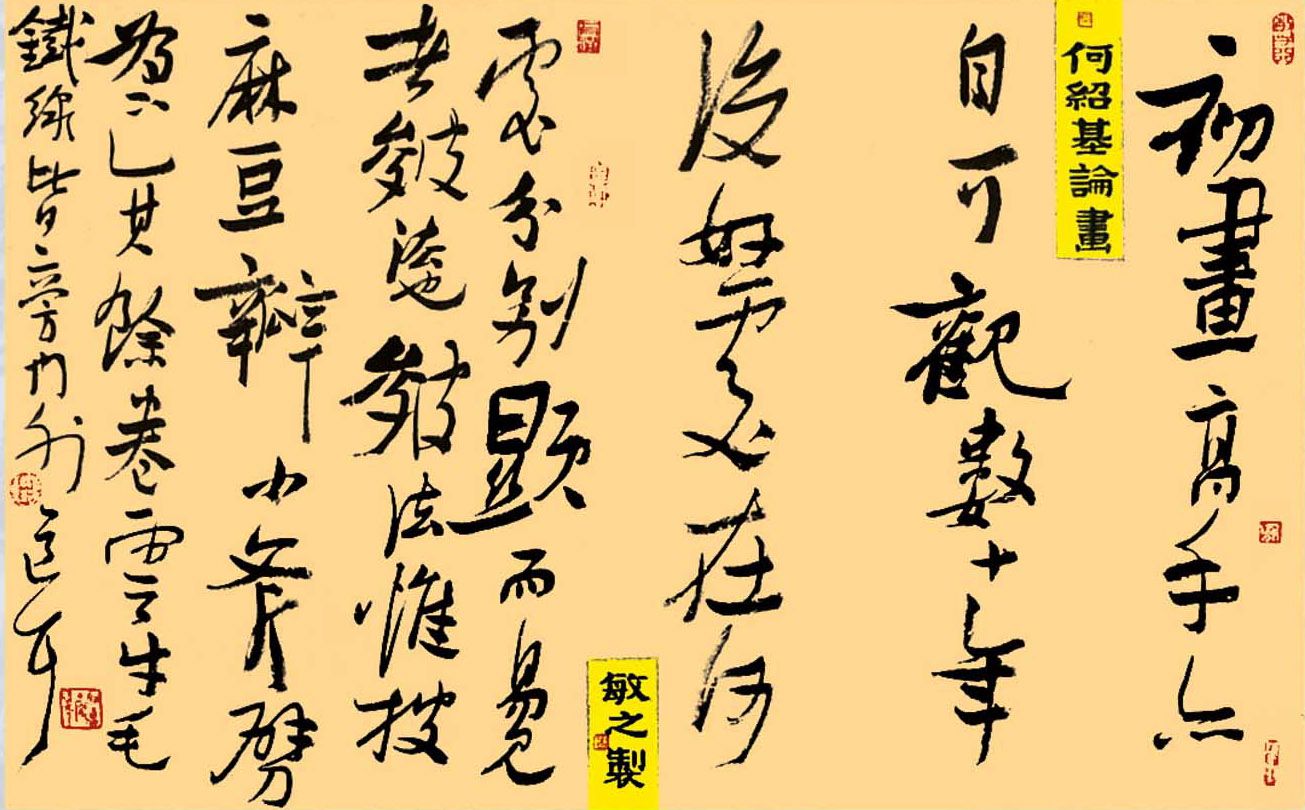 初畫高手亦
何紹基論畫
自可觀數十年
後好惡在何
處分別顯而易見
者皴蓋皴法惟披
敏之製
麻豆瓣小斧劈
為正其餘卷雲牛毛
鐵線皆旁門外道耳